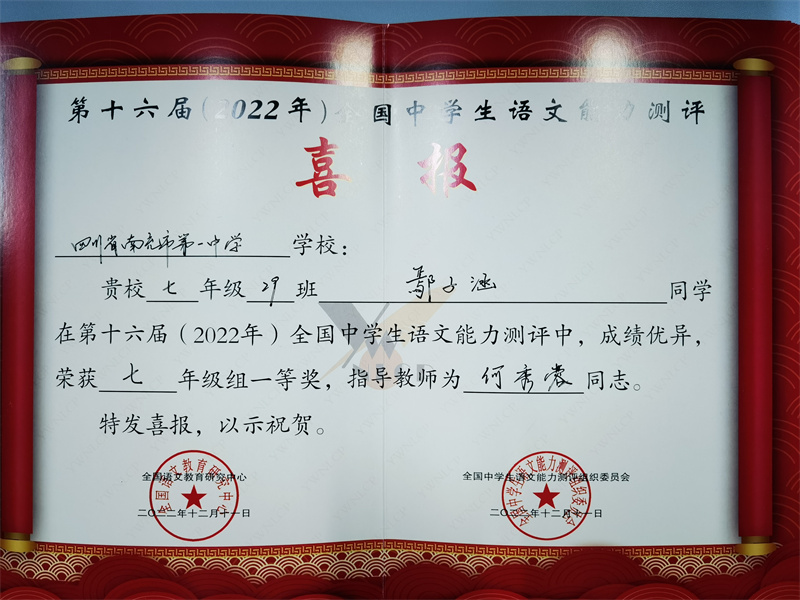 第十六届(2022年)全国中学生语文能力测评
喜报
四川省南充市第一中学学校：
贵校七年级29班鄢子涵同学
在第十六届（2022年）全国中学生语文能力测评中，成绩优异，
荣获七年级组一等奖，指导教师为何秀蓉同志。
特发喜报，以示祝贺。
全国语文教育研究中心
二〇二二年十二月十一日
全国语文教育研究中心
全国中学生语文能力测评组织委员会
二〇二二年十二月十一日
全国中学生语文能力测评组织委员会